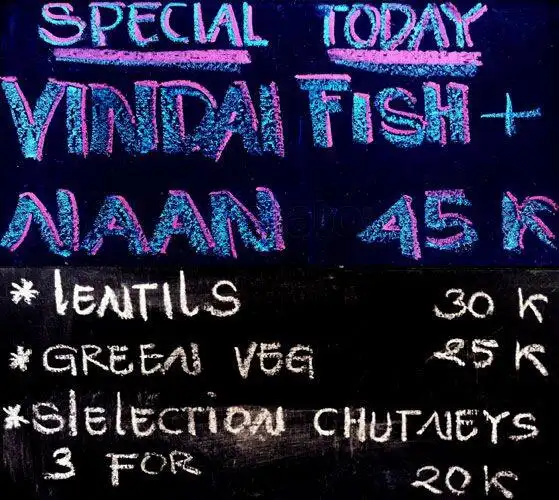 SPECIAL TODAY
VINDAI FISH +
NAAN 45 K
* lENTILS 30 K
* GREEN VEG 25 K
* SlElECTiON CHUTNEYS
3 FOR 20K